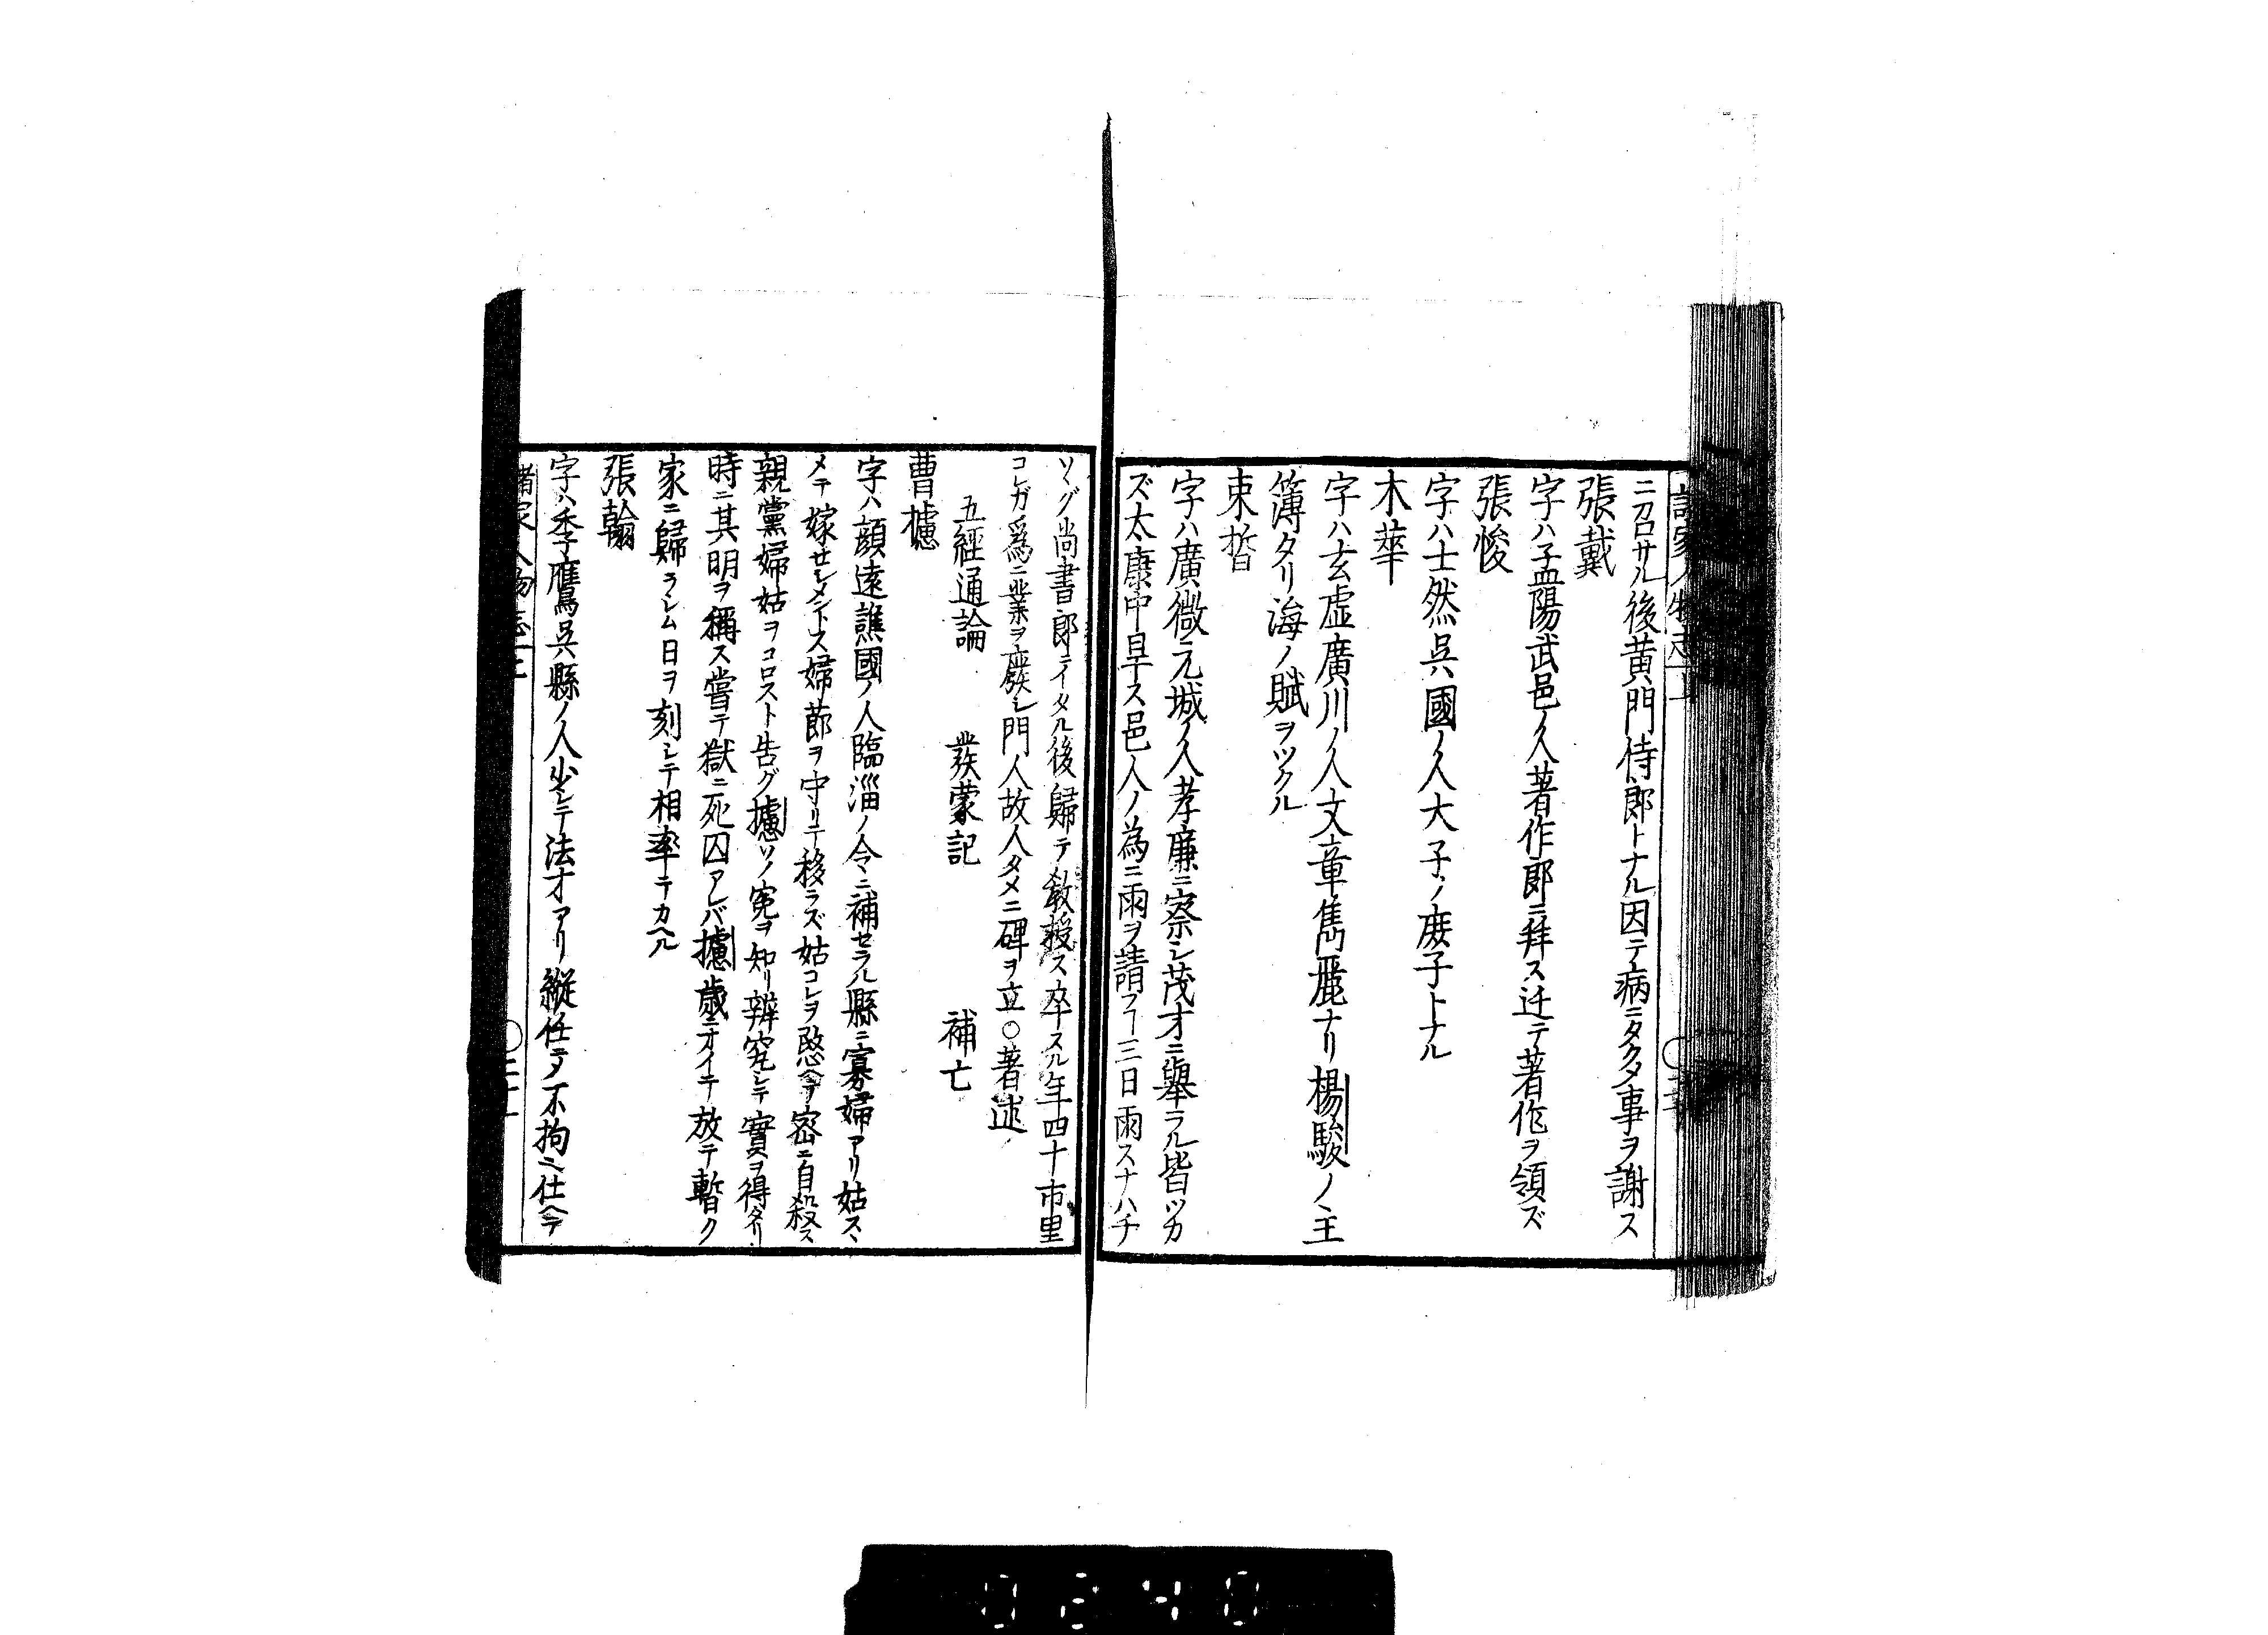 ニ刀口サル後黄門侍郎トナル因テ病ニタクシ事ヲ謝ス
張戴
字ハ孟陽武邑ノ人著作郎ニ拜ス迁テ著作ヲ領ズ
張悛
字ハ士然呉國ノ人大子ノ庶子トナル
木華
字ハ玄虚廣川ノ人文章雋麗ナリ楊駿ノ主
簿タリ海ノ賦ヲツクル
束晢
字ハ廣微元城ノ人孝廉ニ察シ茂才ニ舉ラル皆ツカ
ズ太康中旱ス邑人ノ為ニ雨ヲ請フ丁三日雨スナハチ
ソヽグ尚書郎ニイタル後歸テ教授ス卒スル年四十市里
コレガ爲ニ業ヲ廢シ門人故人タメニ碑ヲ立○著述
五經通論 發蒙記 補亡
曹攄
字ハ顔遠譙國ノ人臨淄ノ令ニ補セラル縣ニ寡婦アリ姑スヽ
メテ嫁セシメントス婦節ヲ守リテ移ラズ姑コレヲ愍ミ密ニ自殺ス
親黨婦姑ヲコロスト告グ攄ソノ寃ヲ知リ辨究シテ實ヲ得タリ
時ニ其明ヲ稱ス嘗テ獄ニ死囚アレバ攄歳ニオイテ放テ暫ク
家ニ歸ラシム日ヲ刻シテ相率テカヘル
張翰
字ハ季鷹呉縣ノ人少シテ法才アリ縱任ニテ不拘ニ仕ヘテ
諸家人物志上